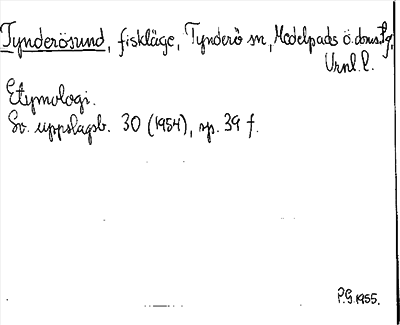 Tynderösund, fiskläge, Tynderö sn, Medelpads ö. doms.
Vrnl. l.
Etymologi.
Sv. uppslagsb. 30 (1954), sp. 39 f.
P.G. 1955.